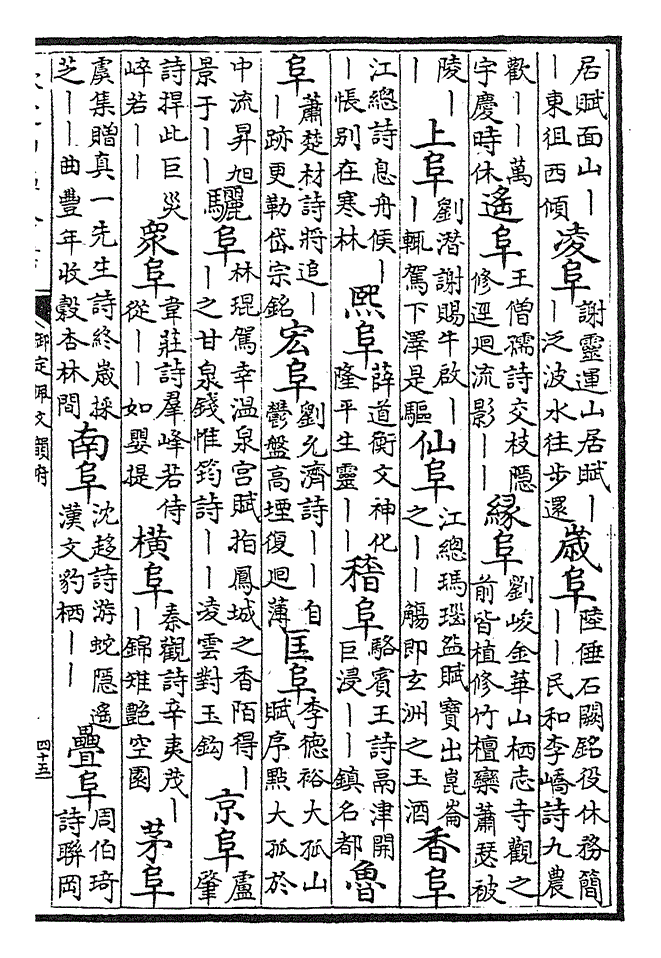 居賦面山｜｜東徂西傾凌阜謝靈運山居賦｜｜泛波水往步還歲阜陸倕石闕銘役休務簡｜｜民和李嶠詩九農
歡｜｜萬宇慶時休遙阜王僧孺詩交枝隱修逕迴流影｜｜緣阜劉峻金華山栖志寺觀之前皆植修竹檀欒蕭瑟被
陵｜｜上阜劉潛謝賜牛啟｜｜輒駕下澤是驅仙阜江總瑪瑙盌賦寶出崑崙之｜｜觴即玄洲之玉酒香阜
江總詩息舟候｜｜悵別在寒林熙阜薛道衡文神化隆平生靈｜｜稽阜駱賓王詩鬲津開巨浸｜｜鎮名都魯
阜蕭楚材詩將追｜｜跡更勒岱宗銘宏阜劉允濟詩｜｜自鬱盤高堙復迴薄匡阜李德裕大孤山賦序點大孤於
中流昇旭景于｜｜驪阜林琨駕幸溫泉宮賦拍鳳城之香陌得｜｜之甘泉錢惟筠詩｜｜凌雲對玉鈎京阜盧肇
詩捍此巨災崒若｜｜衆阜韋莊詩羣峰若侍從｜｜如嬰提橫阜秦觀詩辛夷茂｜｜錦雉艷空園茅阜
虞集贈真一先生詩終歲採芝｜｜曲豐年收穀杏林間南阜沈趍詩游蛇隱遙漢文豹栖｜｜疊阜周伯琦詩聯岡
御定佩文韻府
四十五